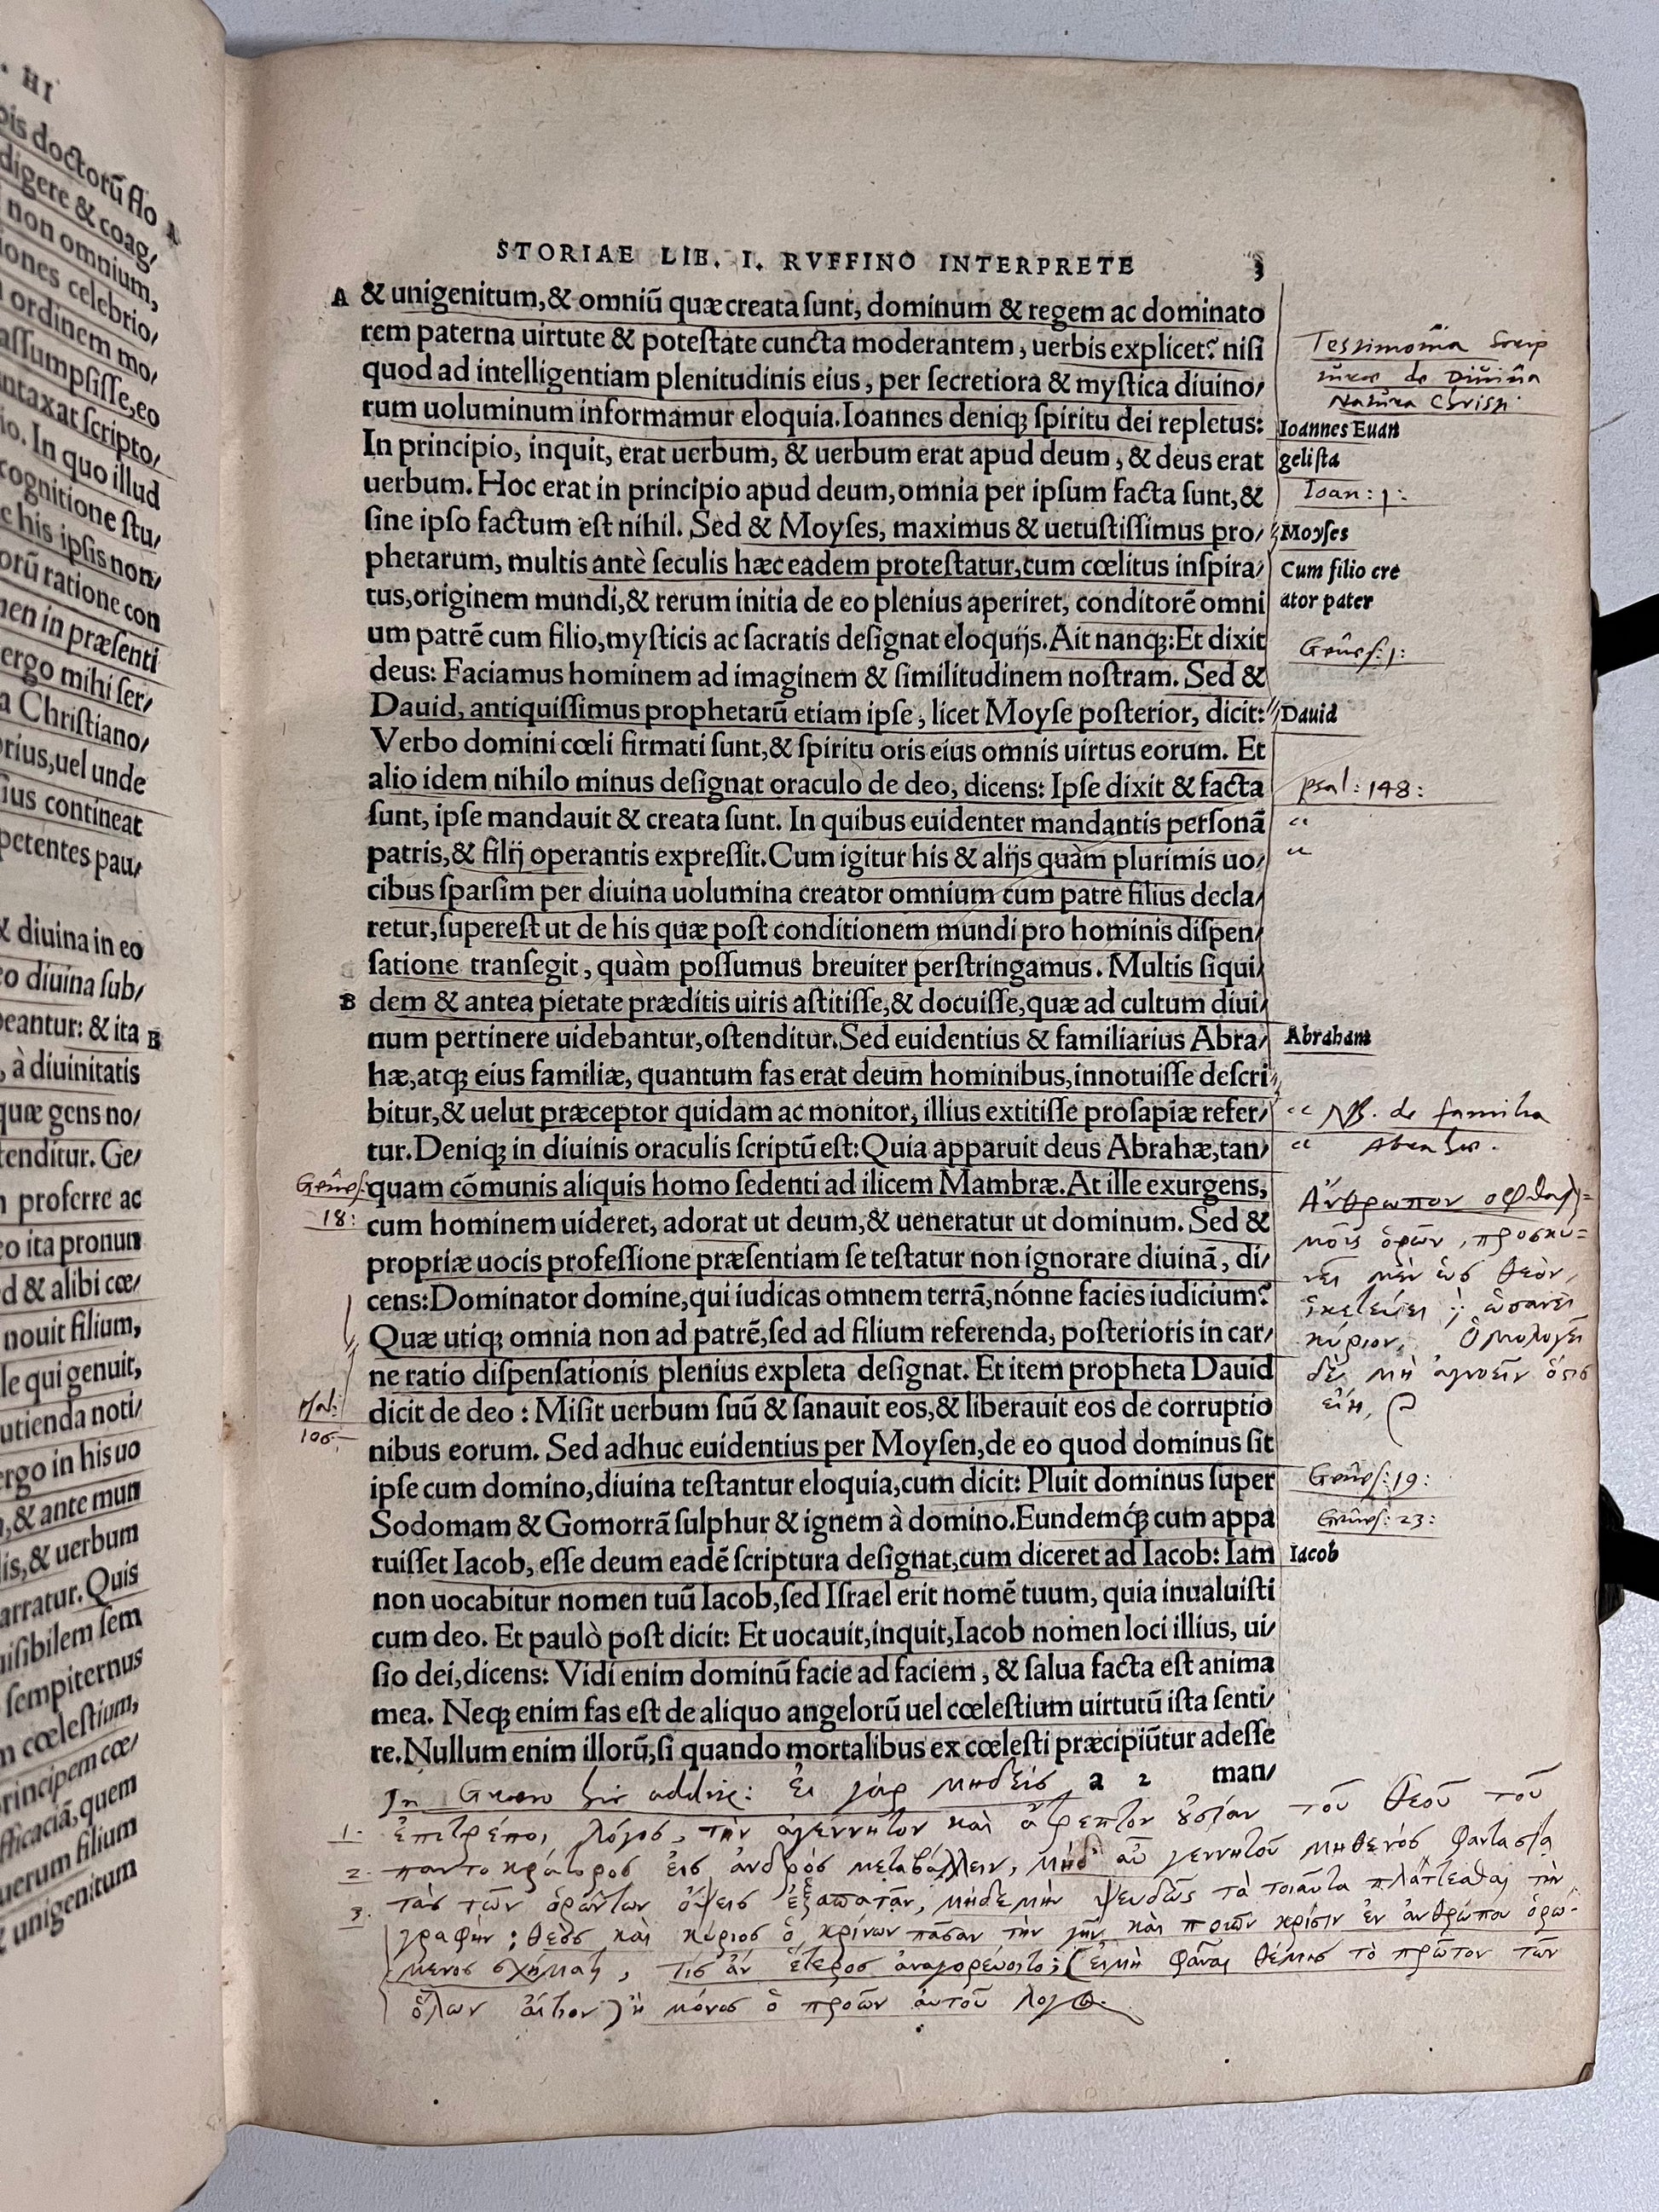 . HI
pis doctorū flo
digere & coag/
non omnium,
iones celebrio/
ordinem mo/
assumpsisse, eo
ntaxat scripto/
io. In quo illud
cognitione stu/
c his ipsis non/
orū ratione con
men in præsenti
ergo mihi ser/
a Christiano/
orius, uel unde
ius contineat
petentes pau/
& diuina in eo
o diuina sub/
beantur: & ita B
, à diuinitatis
quæ gens no/
tenditur. Ge/
proferre ac
o ita pronun
d & alibi cœ/
nouit filium,
le qui genuit,
utienda noti/
ergo in his uo
, & ante mun
lis, & uerbum
arratur. Quis
uisibilem sem
sempiternus
m cœlestium,
principem cœ/
efficaciā, quem
uerum filium
& unigenitum
STORIAE LIB. I. RVFFINO INTERPRETE 3
A & unigenitum, & omniū quæ creata sunt, dominum & regem ac dominato
rem paterna uirtute & potestate cuncta moderantem, uerbis explicet? nisi
quod ad intelligentiam plenitudinis eius, per secretiora & mystica diuino/
rum uoluminum informamur eloquia. Ioannes deniqꝫ spiritu dei repletus:
In principio, inquit, erat uerbum, & uerbum erat apud deum, & deus erat
uerbum. Hoc erat in principio apud deum, omnia per ipsum facta sunt, &
sine ipso factum est nihil. Sed & Moyses, maximus & uetustissimus pro/
phetarum, multis antè seculis hæc eadem protestatur, cum cœlitus inspira/
tus, originem mundi, & rerum initia de eo plenius aperiret, conditorē omni
um patrē cum filio, mysticis ac sacratis designat eloquijs. Ait nanqꝫ: Et dixit
deus: Faciamus hominem ad imaginem & similitudinem nostram. Sed &
Dauid, antiquissimus prophetarū etiam ipse, licet Moyse posterior, dicit:
Verbo domini cœli firmati sunt, & spiritu oris eius omnis uirtus eorum. Et
alio idem nihilo minus designat oraculo de deo, dicens: Ipse dixit & facta
sunt, ipse mandauit & creata sunt. In quibus euidenter mandantis personā
patris, & filij operantis expressit. Cum igitur his & alijs quàm plurimis uo/
cibus sparsim per diuina uolumina creator omnium cum patre filius decla/
retur, superest ut de his quæ post conditionem mundi pro hominis dispen/
satione transegit, quàm possumus breuiter perstringamus. Multis siqui/
B dem & antea pietate præditis uiris astitisse, & docuisse, quæ ad cultum diui/
num pertinere uidebantur, ostenditur. Sed euidentius & familiarius Abra/
hæ, atqꝫ eius familiæ, quantum fas erat deum hominibus, innotuisse descri
bitur, & uelut præceptor quidam ac monitor, illius extitisse prosapiæ refer/
tur. Deniqꝫ in diuinis oraculis scriptū est: Quia apparuit deus Abrahæ, tan/
quam cōmunis aliquis homo sedenti ad ilicem Mambræ. At ille exurgens,
cum hominem uideret, adorat ut deum, & ueneratur ut dominum. Sed &
propriæ uocis professione præsentiam se testatur non ignorare diuinā, di/
cens: Dominator domine, qui iudicas omnem terrā, nónne facies iudicium?
Quæ utiqꝫ omnia non ad patrē, sed ad filium referenda, posterioris in car/
ne ratio dispensationis plenius expleta designat. Et item propheta Dauid
dicit de deo: Misit uerbum suū & sanauit eos, & liberauit eos de corruptio
nibus eorum. Sed adhuc euidentius per Moysen, de eo quod dominus sit
ipse cum domino, diuina testantur eloquia, cum dicit: Pluit dominus super
Sodomam & Gomorrā sulphur & ignem à domino. Eundemqꝫ cum appa
ruisset Iacob, esse deum eadē scriptura designat, cum diceret ad Iacob: Iam
non uocabitur nomen tuū Iacob, sed Israel erit nomē tuum, quia inualuisti
cum deo. Et paulò post dicit: Et uocauit, inquit, Iacob nomen loci illius, ui/
sio dei, dicens: Vidi enim dominū facie ad faciem, & salua facta est anima
mea. Neqꝫ enim fas est de aliquo angelorū uel cœlestium uirtutū ista senti/
re. Nullum enim illorū, si quando mortalibus ex cœlesti præcipiūtur adesse
a 2 man/
Ioannes Euan
gelista
Ioan: 1:
Moyses
Cum filio cre
ator pater
Genes: 1:
Dauid
psal: 148:
Abraham
NB. de familia
Genes:
18:
Ἄνθρωπον ὀφθαλ=
μοῖς ὁρῶν, προσκυ=
νεῖ μὲν ὡς θεὸν,
ἱκετεύει ; ὡσανεὶ
κύριον, Ὁμολογεῖ
δὲ, μὴ ἀγνοεῖν ὅστις
εἴη,
106.
Genes: 19:
Genes: 23:
Iacob
In Graeco hic additur: Εἰ γὰρ μηδεὶς
1. ἐπιτρέποι λόγος, τὴν ἀγέννητον καὶ ἄτρεπτον οὐσίαν τοῦ θεοῦ τοῦ
2. παντοκράτορος εἰς ἀνδρὸς μεταβάλλειν, μηδ' αὖ γεννητοῦ μηθενὸς φαντασίᾳ
3. τὰς τῶν ὁρώντων ὄψεις ἐξαπατᾶν, μηδὲ μὴν ψευδῶς τὰ τοιαῦτα πλάττεσθαι τὴν
γραφήν; θεὸς καὶ κύριος ὁ κρίνων πᾶσαν τὴν γῆν καὶ ποιῶν κρίσιν ἐν ἀνθρώπου ὁρώ-
μενος σχήματι, τίς ἂν ἕτερος ἀναγορεύοιτο; (εἰ μὴ φάναι θέμις τὸ πρῶτον τῶν
ὅλων αἴτιον) ἢ μόνος ὁ προὼν αὐτοῦ λόγος.